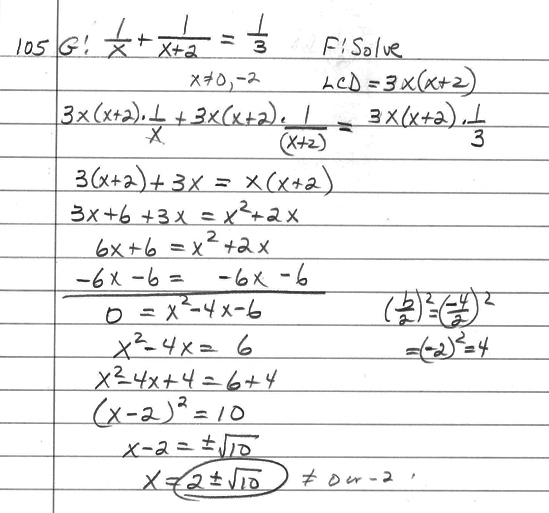 105 G: 1/x + 1/(x+2) = 1/3 F: Solve
x≠0, -2 LCD = 3x(x+2)
3x(x+2)·1/x + 3x(x+2)·1/(x+2) = 3x(x+2)·1/3
3(x+2) + 3x = x(x+2)
3x+6+3x = x²+2x
6x+6 = x²+2x
-6x -6 = -6x -6
0 = x²-4x-6 (b/2)² = (-4/2)²
x²-4x = 6 =(-2)²=4
x²-4x+4 = 6+4
(x-2)² = 10
x-2 = ±√10
x = 2±√10 ≠ 0 or -2